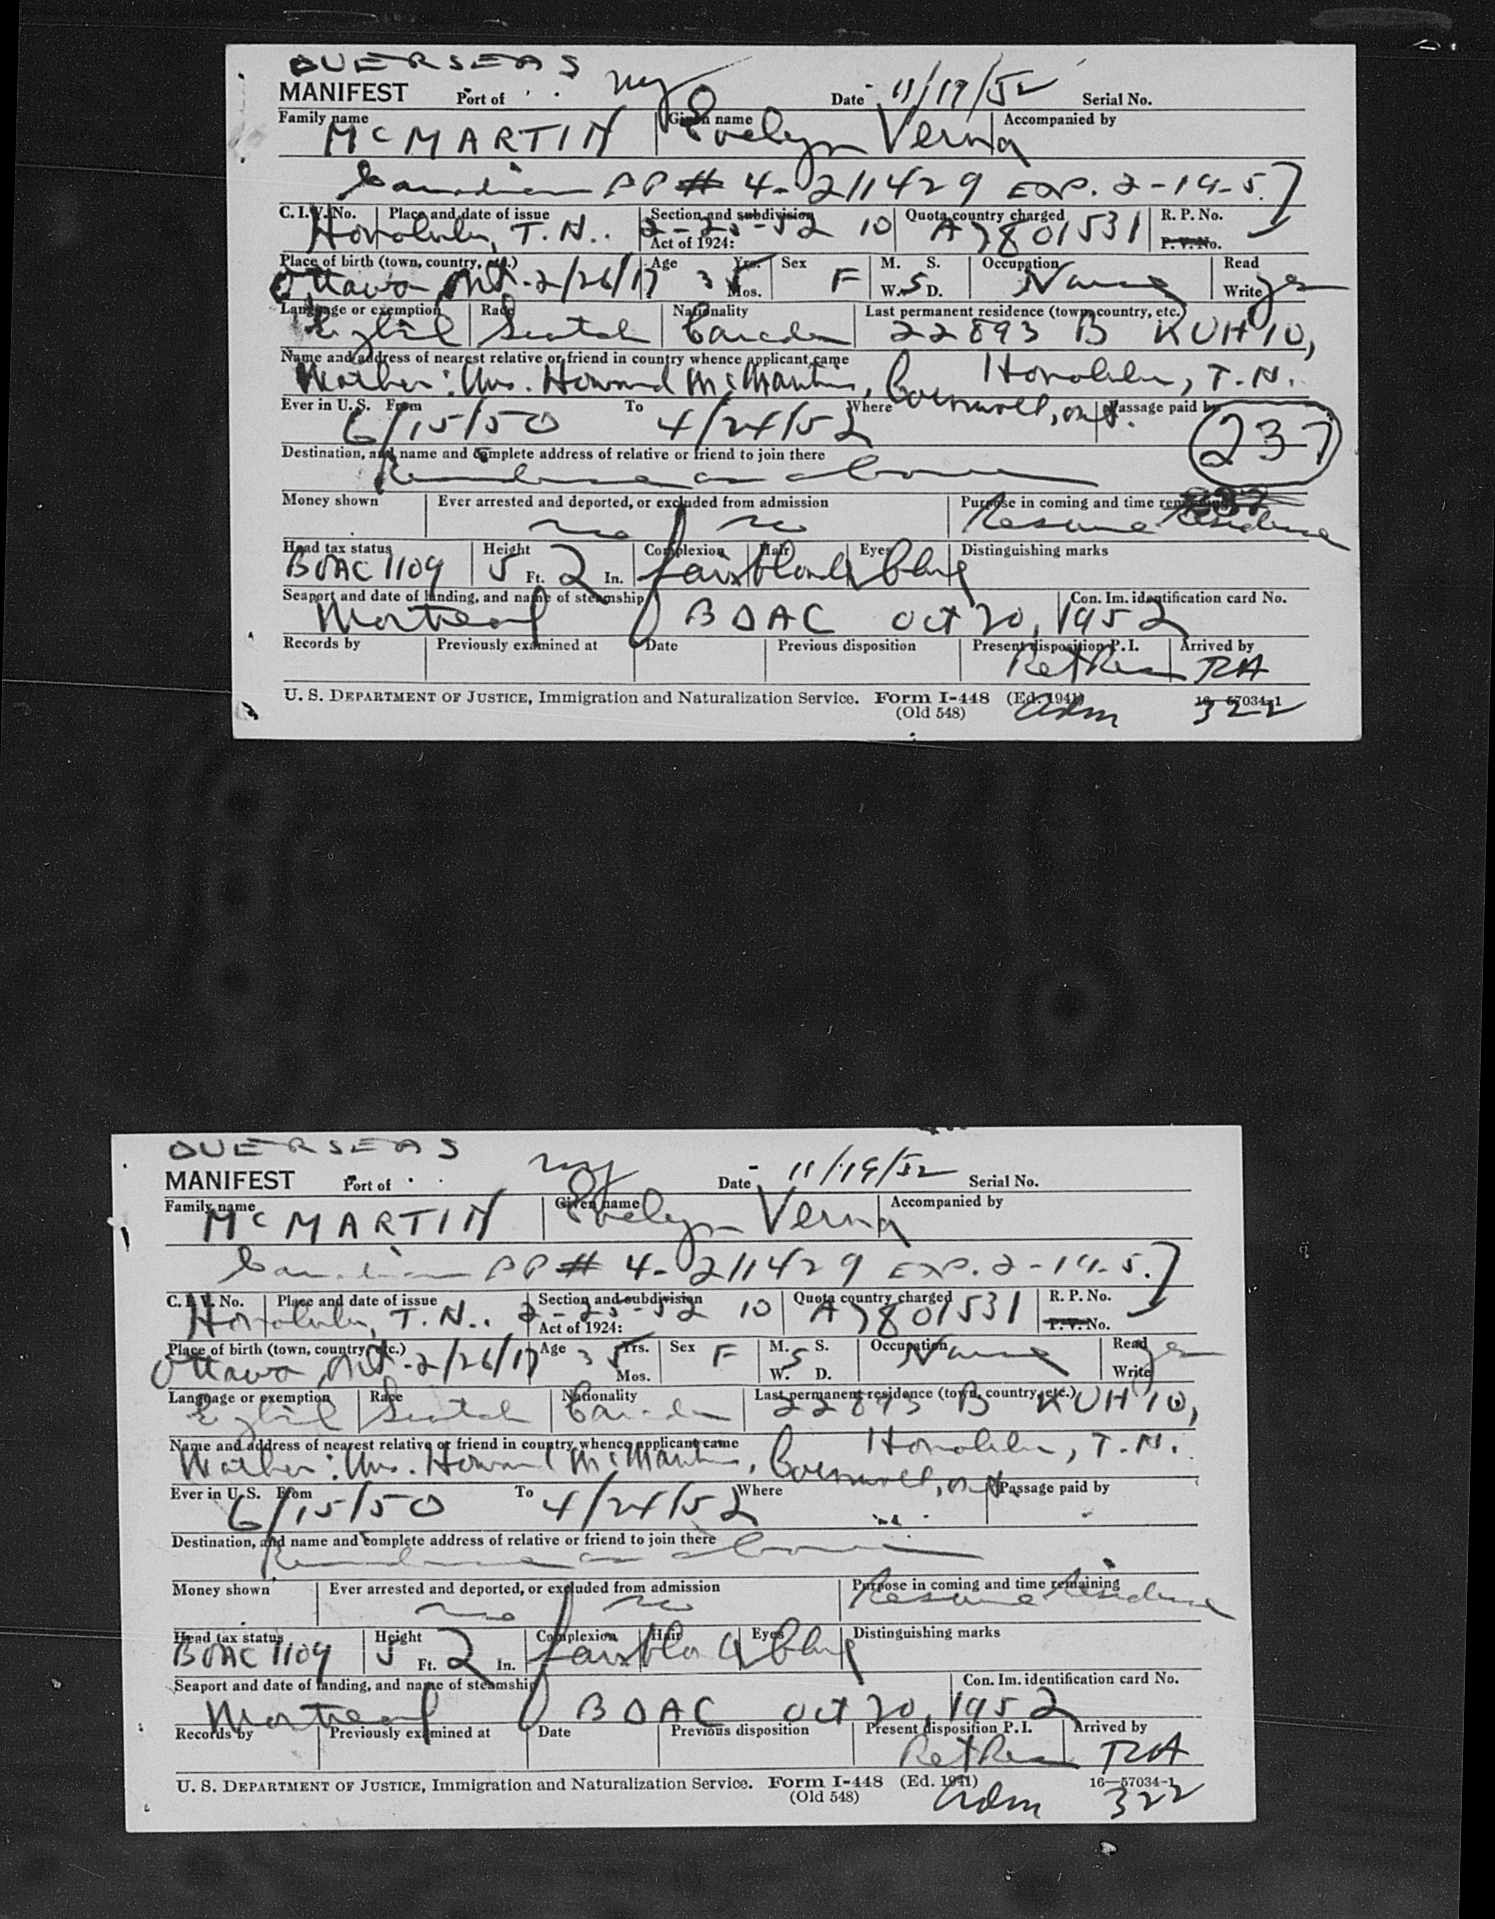 OVERSEAS
MANIFEST Port of NY Date 11/19/52 Serial No.
Family name Given name Accompanied by
McMARTIN Evelyn Verna
Canadian PP # 4-211429 EXP. 2-19-57
C. I. V. No. Place and date of issue Section and subdivision Quota country charged R. P. No.
Honolulu, T.H. 2-25-52 10 A7801531
Act of 1924: P. V. No.
Place of birth (town, country, etc.) Age Yrs. Sex M. S. Occupation Read
Ottawa, Ont. 2/26/17 35 F S Nurse yes
Mos. W. D. Write
Language or exemption Race Nationality Last permanent residence (town, country, etc.)
English Scotch Canadian 22893 B KUHIO,
Name and address of nearest relative or friend in country whence applicant came Honolulu, T.H.
Mother: Mrs. Howard McMartin, Cornwall, Ont.
Ever in U. S. From To Where Passage paid by
6/15/50 4/24/52 237
Destination, and name and complete address of relative or friend to join there
Residence as above
Money shown Ever arrested and deported, or excluded from admission Purpose in coming and time remaining
no no Resume Residence
Head tax status Height Complexion Hair Eyes Distinguishing marks
BOAC 1109 5 Ft. 2 In. fair blond blue
Seaport and date of landing, and name of steamship Con. Im. identification card No.
Montreal BOAC Oct 20, 1952
Records by Previously examined at Date Previous disposition Present disposition P. I. Arrived by
Ret Res RA
U. S. DEPARTMENT OF JUSTICE, Immigration and Naturalization Service. Form I-448 (Ed. 1941) 16—57034-1
(Old 548) adm 322
OVERSEAS
MANIFEST Port of NY Date 11/19/52 Serial No.
Family name Given name Accompanied by
McMARTIN Evelyn Verna
Canadian PP # 4-211429 EXP. 2-19-57
C. I. V. No. Place and date of issue Section and subdivision Quota country charged R. P. No.
Honolulu, T.H. 2-25-52 10 A7801531
Act of 1924: P. V. No.
Place of birth (town, country, etc.) Age Yrs. Sex M. S. Occupation Read
Ottawa, Ont. 2/26/17 35 F S Nurse yes
Mos. W. D. Write
Language or exemption Race Nationality Last permanent residence (town, country, etc.)
English Scotch Canadian 22893 B KUHIO,
Name and address of nearest relative or friend in country whence applicant came Honolulu, T.H.
Mother: Mrs. Howard McMartin, Cornwall, Ont.
Ever in U. S. From To Where Passage paid by
6/15/50 4/24/52
Destination, and name and complete address of relative or friend to join there
Residence as above
Money shown Ever arrested and deported, or excluded from admission Purpose in coming and time remaining
no no Resume Residence
Head tax status Height Complexion Hair Eyes Distinguishing marks
BOAC 1109 5 Ft. 2 In. fair blond blue
Seaport and date of landing, and name of steamship Con. Im. identification card No.
Montreal BOAC Oct 20, 1952
Records by Previously examined at Date Previous disposition Present disposition P. I. Arrived by
Ret Res RA
U. S. DEPARTMENT OF JUSTICE, Immigration and Naturalization Service. Form I-448 (Ed. 1941) 16—57034-1
(Old 548) adm 322